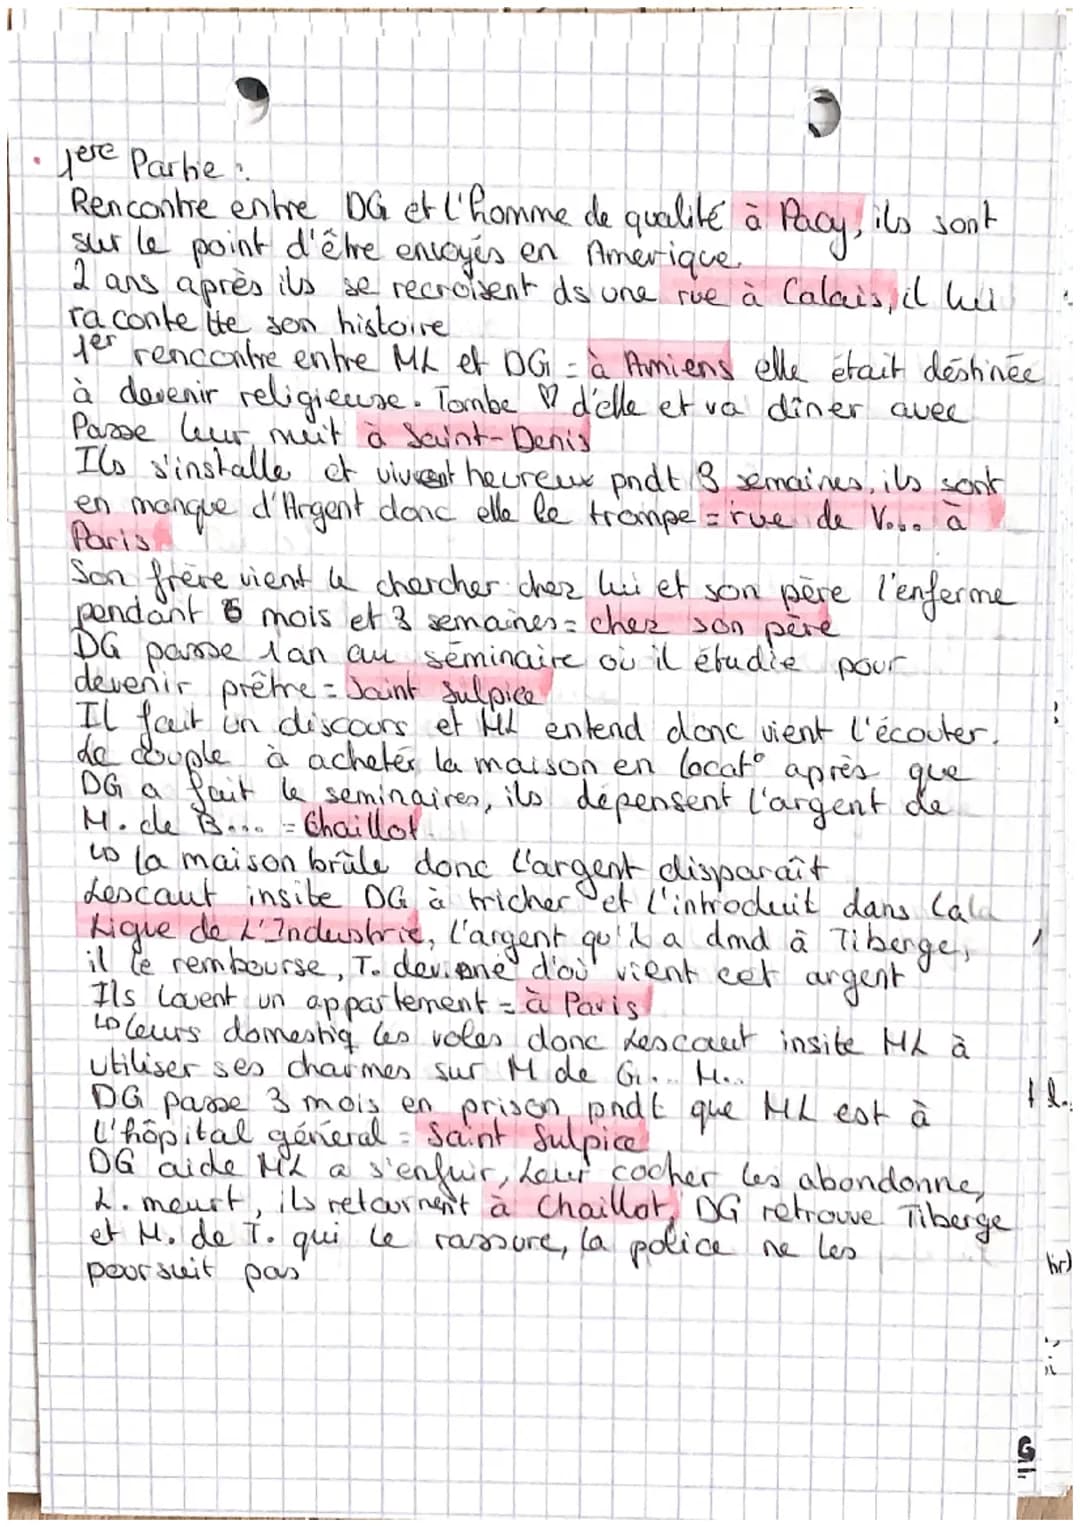 . 1ere Partie :
Rencontre entre DG et l'homme de qualité à Pacy, ils sont
sur le point d'être envoyés en Amerique.
2 ans après ils se recroisent ds une rue à Calais, il lui
raconte tte son histoire
1er rencontre entre ML et DG = à Amiens elle était déstinée
à devenir religieuse. Tombe ♡ d'elle et va dîner avec
Passe leur nuit à Saint-Denis
Ils s'installe et vivent heureux pndt 3 semaines, ils sont
en manque d'Argent donc elle le trompe = rue de V... à
Paris
Son frère vient le chercher chez lui et son père l'enferme
pendant 6 mois et 3 semaines = chez son père
DG passe 1an au séminaire où il étudie pour
devenir prêtre = Saint Sulpice
Il fait un discours et ML entend donc vient l'écouter.
Le couple à acheter la maison en locat° après que
DG a fait le seminaires, ils dépensent l'argent de
M. de B.... = Chaillot.
↳ la maison brûle donc l'argent disparaît
Lescaut insite DG à tricher et l'introduit dans la
Ligue de L'Industrie, l'argent qu'il a dmd à Tiberge,
il le rembourse, T. deviene d'où vient cet argent
Ils louent un appartement = à Paris
↳ leurs domestiq les voles donc Lescaut insite ML à
utiliser ses charmes sur M de G... M..
DG passe 3 mois en prison pndt que ML est à
l'hôpital général = Saint Sulpice
DG aide ML a s'enfuir, Leur cocher les abandonne,
L. meurt, ils retournent à Chaillot, DG retrouve Tiberge
et M. de T. qui le rassure, la police ne les
poursuit pas